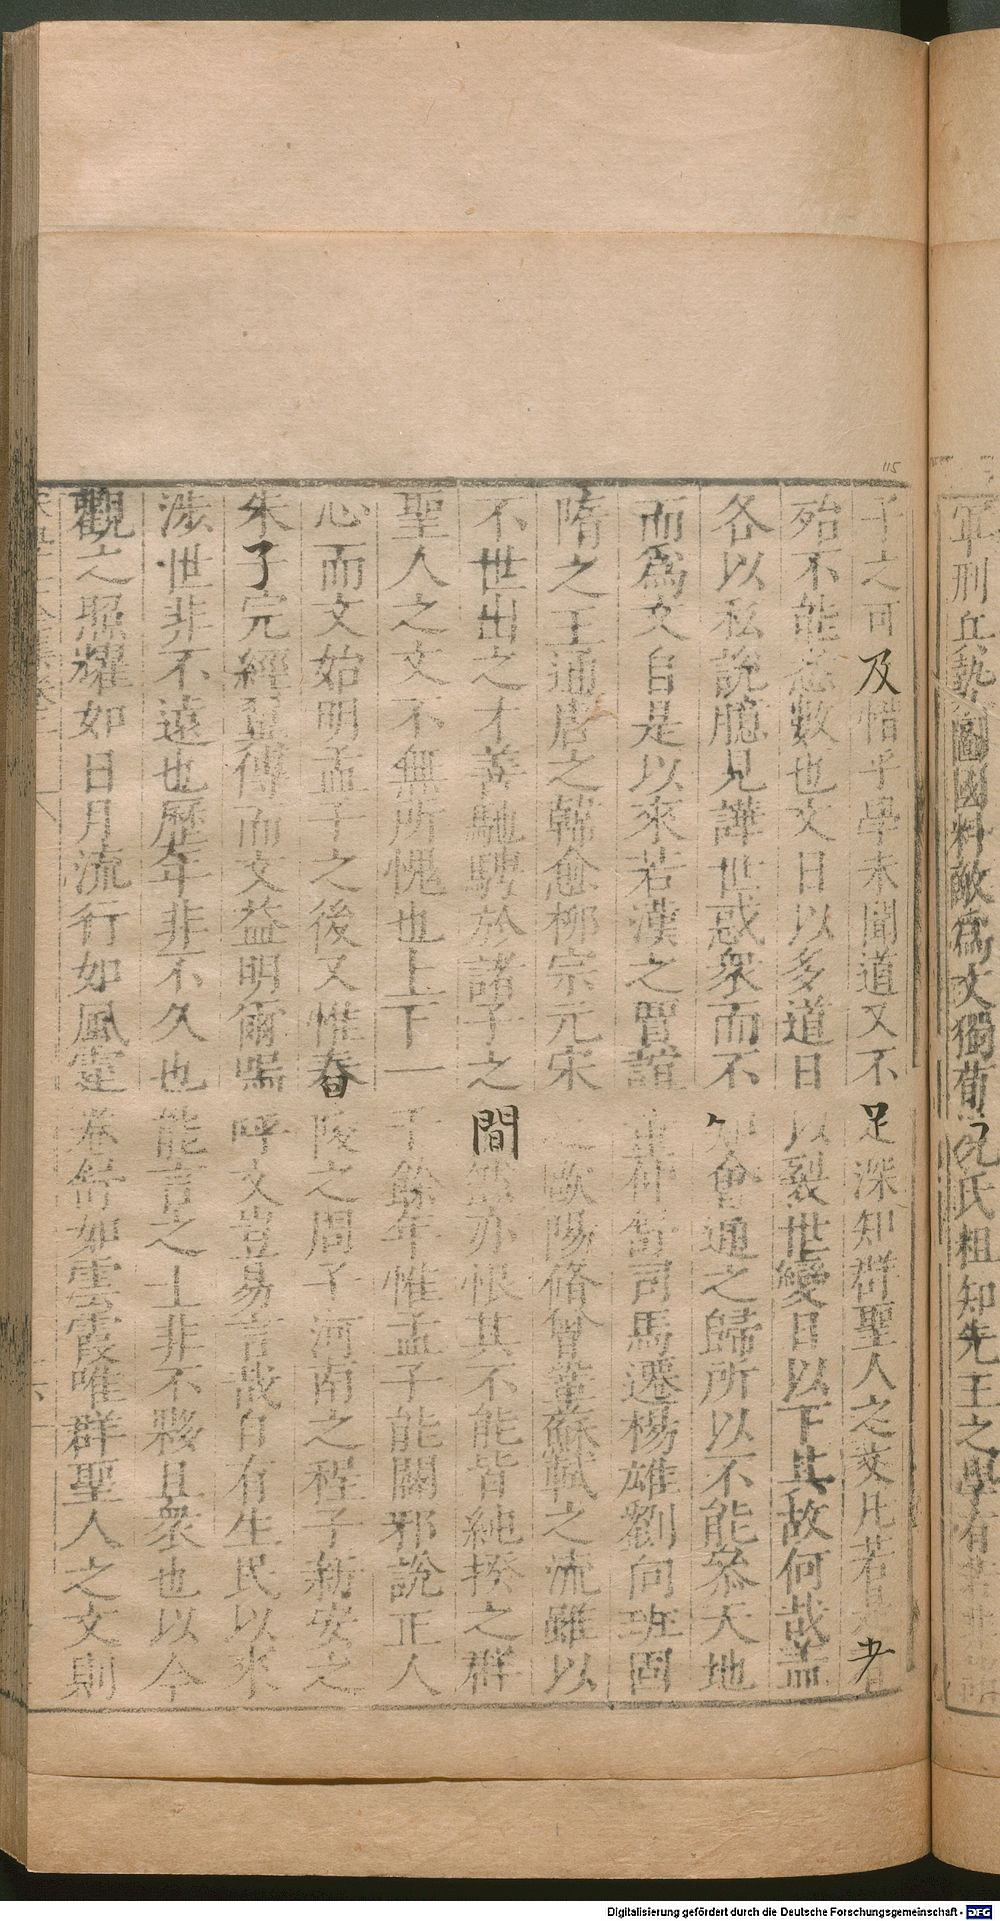 軍刑兵勢圖國料敵爲文獨荀況氏粗知先王之學有若非諸
子之可及惜乎學未聞道又不足深知群聖人之文凡若是者
殆不能悉數也文日以多道日以裂世變日以下其故何哉蓋
各以私說臆見譁世惑衆而不知會通之歸所以不能叅天地
而爲文自是以來若漢之賈誼董仲舒司馬遷楊雄劉向班固
隋之王通唐之韓愈柳宗元宋之歐陽脩曾鞏蘇軾之流雖以
不世出之才善馳騁於諸子之間然亦恨其不能皆純揆之群
聖人之文不無所愧也上下一千餘年惟孟子能闢邪說正人
心而文始明孟子之後又惟舂陵之周子河南之程子新安之
朱子完經翼傳而文益明爾嗚呼文豈易言哉自有生民以來
涉世非不遠也歷年非不久也能言之士非不夥且衆也以今
觀之照耀如日月流行如風霆卷舒如雲霞唯群聖人之文則
115
Digitalisierung gefördert durch die Deutsche Forschungsgemeinschaft - DFG